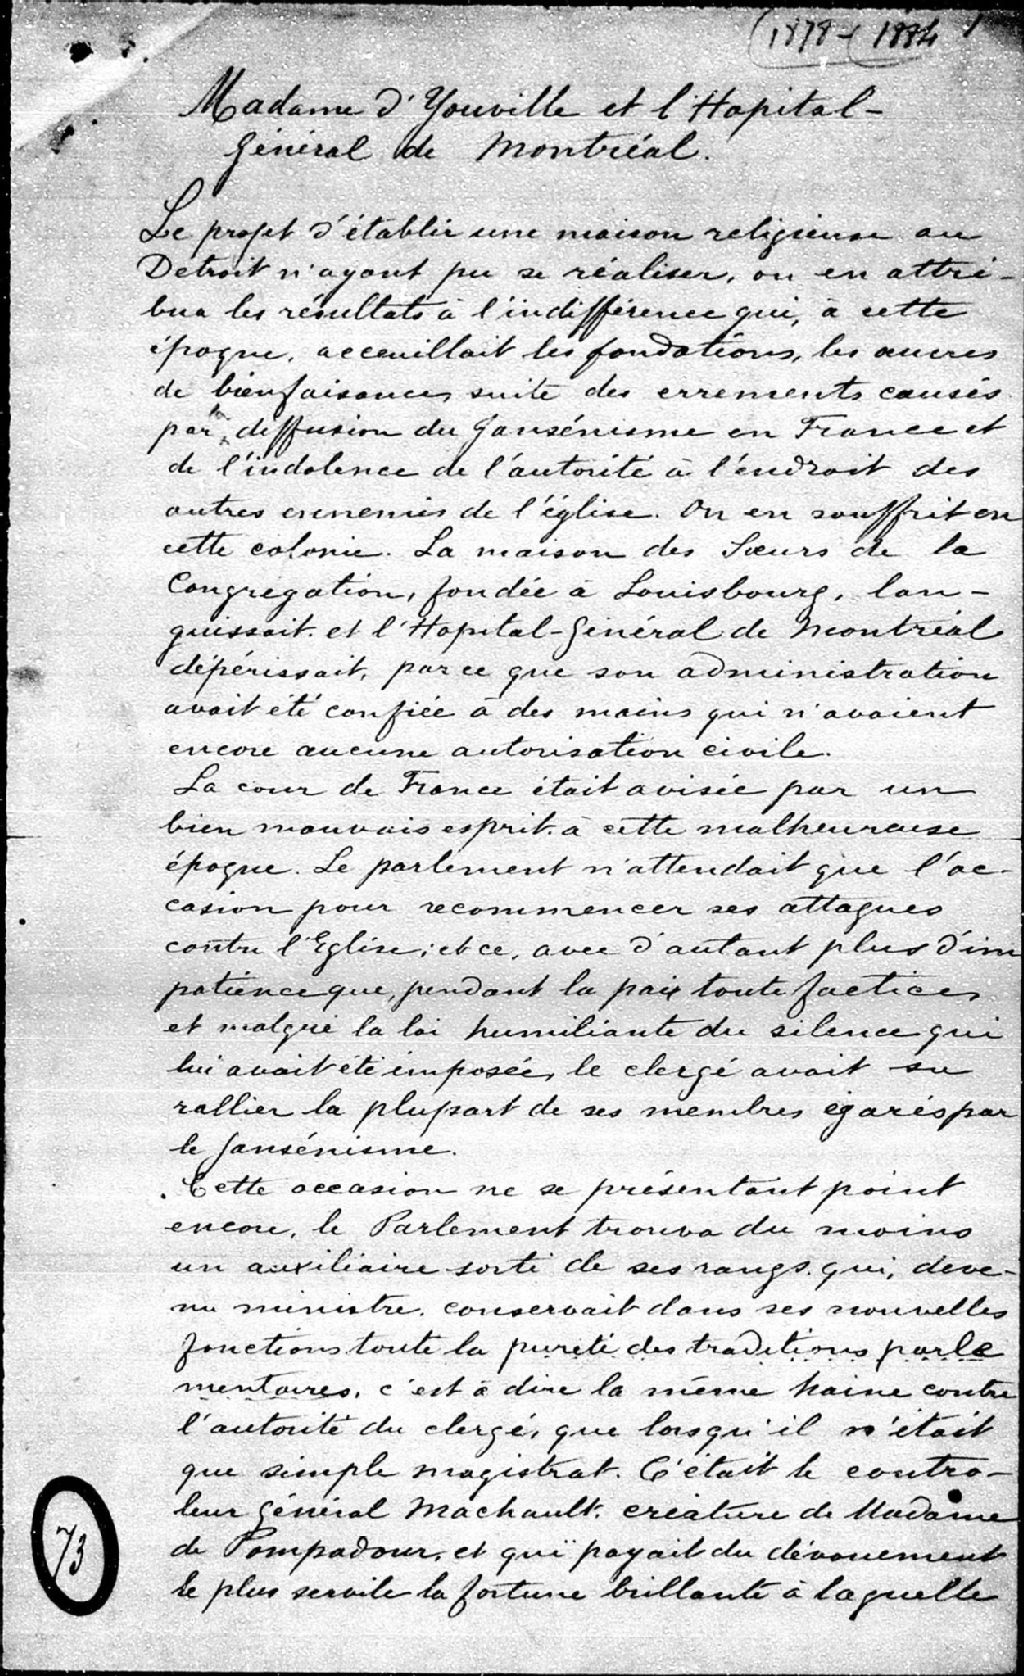 (1878-(1884 1
Madame d'Youville et l'Hopital-
Général de Montréal.
Le projet d'établir une maison religieuse au
Detroit n'ayant pu se réaliser, on en attri-
bua les résultats à l'indifférence qui, à cette
époque, acceuillait les fondations, les œuvres
de bienfaisance, suite des errements causés
par la diffusion du Jansénisme en France et
de l'indolence de l'autorité à l'endroit des
autres ennemies de l'église. On en souffrit en
cette colonie. La maison des Sœurs de la
Congregation, fondée à Louisbourg, lan-
guissait et l'Hopital-Général de Montréal
dépérissait, parce que son administration
avait été confiée à des mains qui n'avaient
encore aucune autorisation civile.
La cour de France était avisée par un
bien mauvais esprit à cette malheureuse
époque. Le parlement n'attendait que l'oc-
casion pour recommencer ses attaques
contre l'Eglise; et ce, avec d'autant plus d'im
patience que, pendant la paix toute factice,
et malgré la loi humiliante du silence qui
lui avait été imposée, le clergé avait su
rallier la plupart de ses membres égarés par
le Jansénisme.
Cette occasion ne se présentant point
encore, le Parlement trouva du moins
un auxiliaire sorti de ses rangs qui, deve-
nu ministre, conservait dans ses nouvelles
fonctions toute la pureté des traditions parle
mentaires, c'est à dire la même haine contre
l'autorité du clergé, que lorsqu'il n'était
que simple magistrat. C'était le contro-
leur général Machault, créature de Madame
de Pompadour, et qui payait du dévouement
le plus servile la fortune brillante à laquelle
73